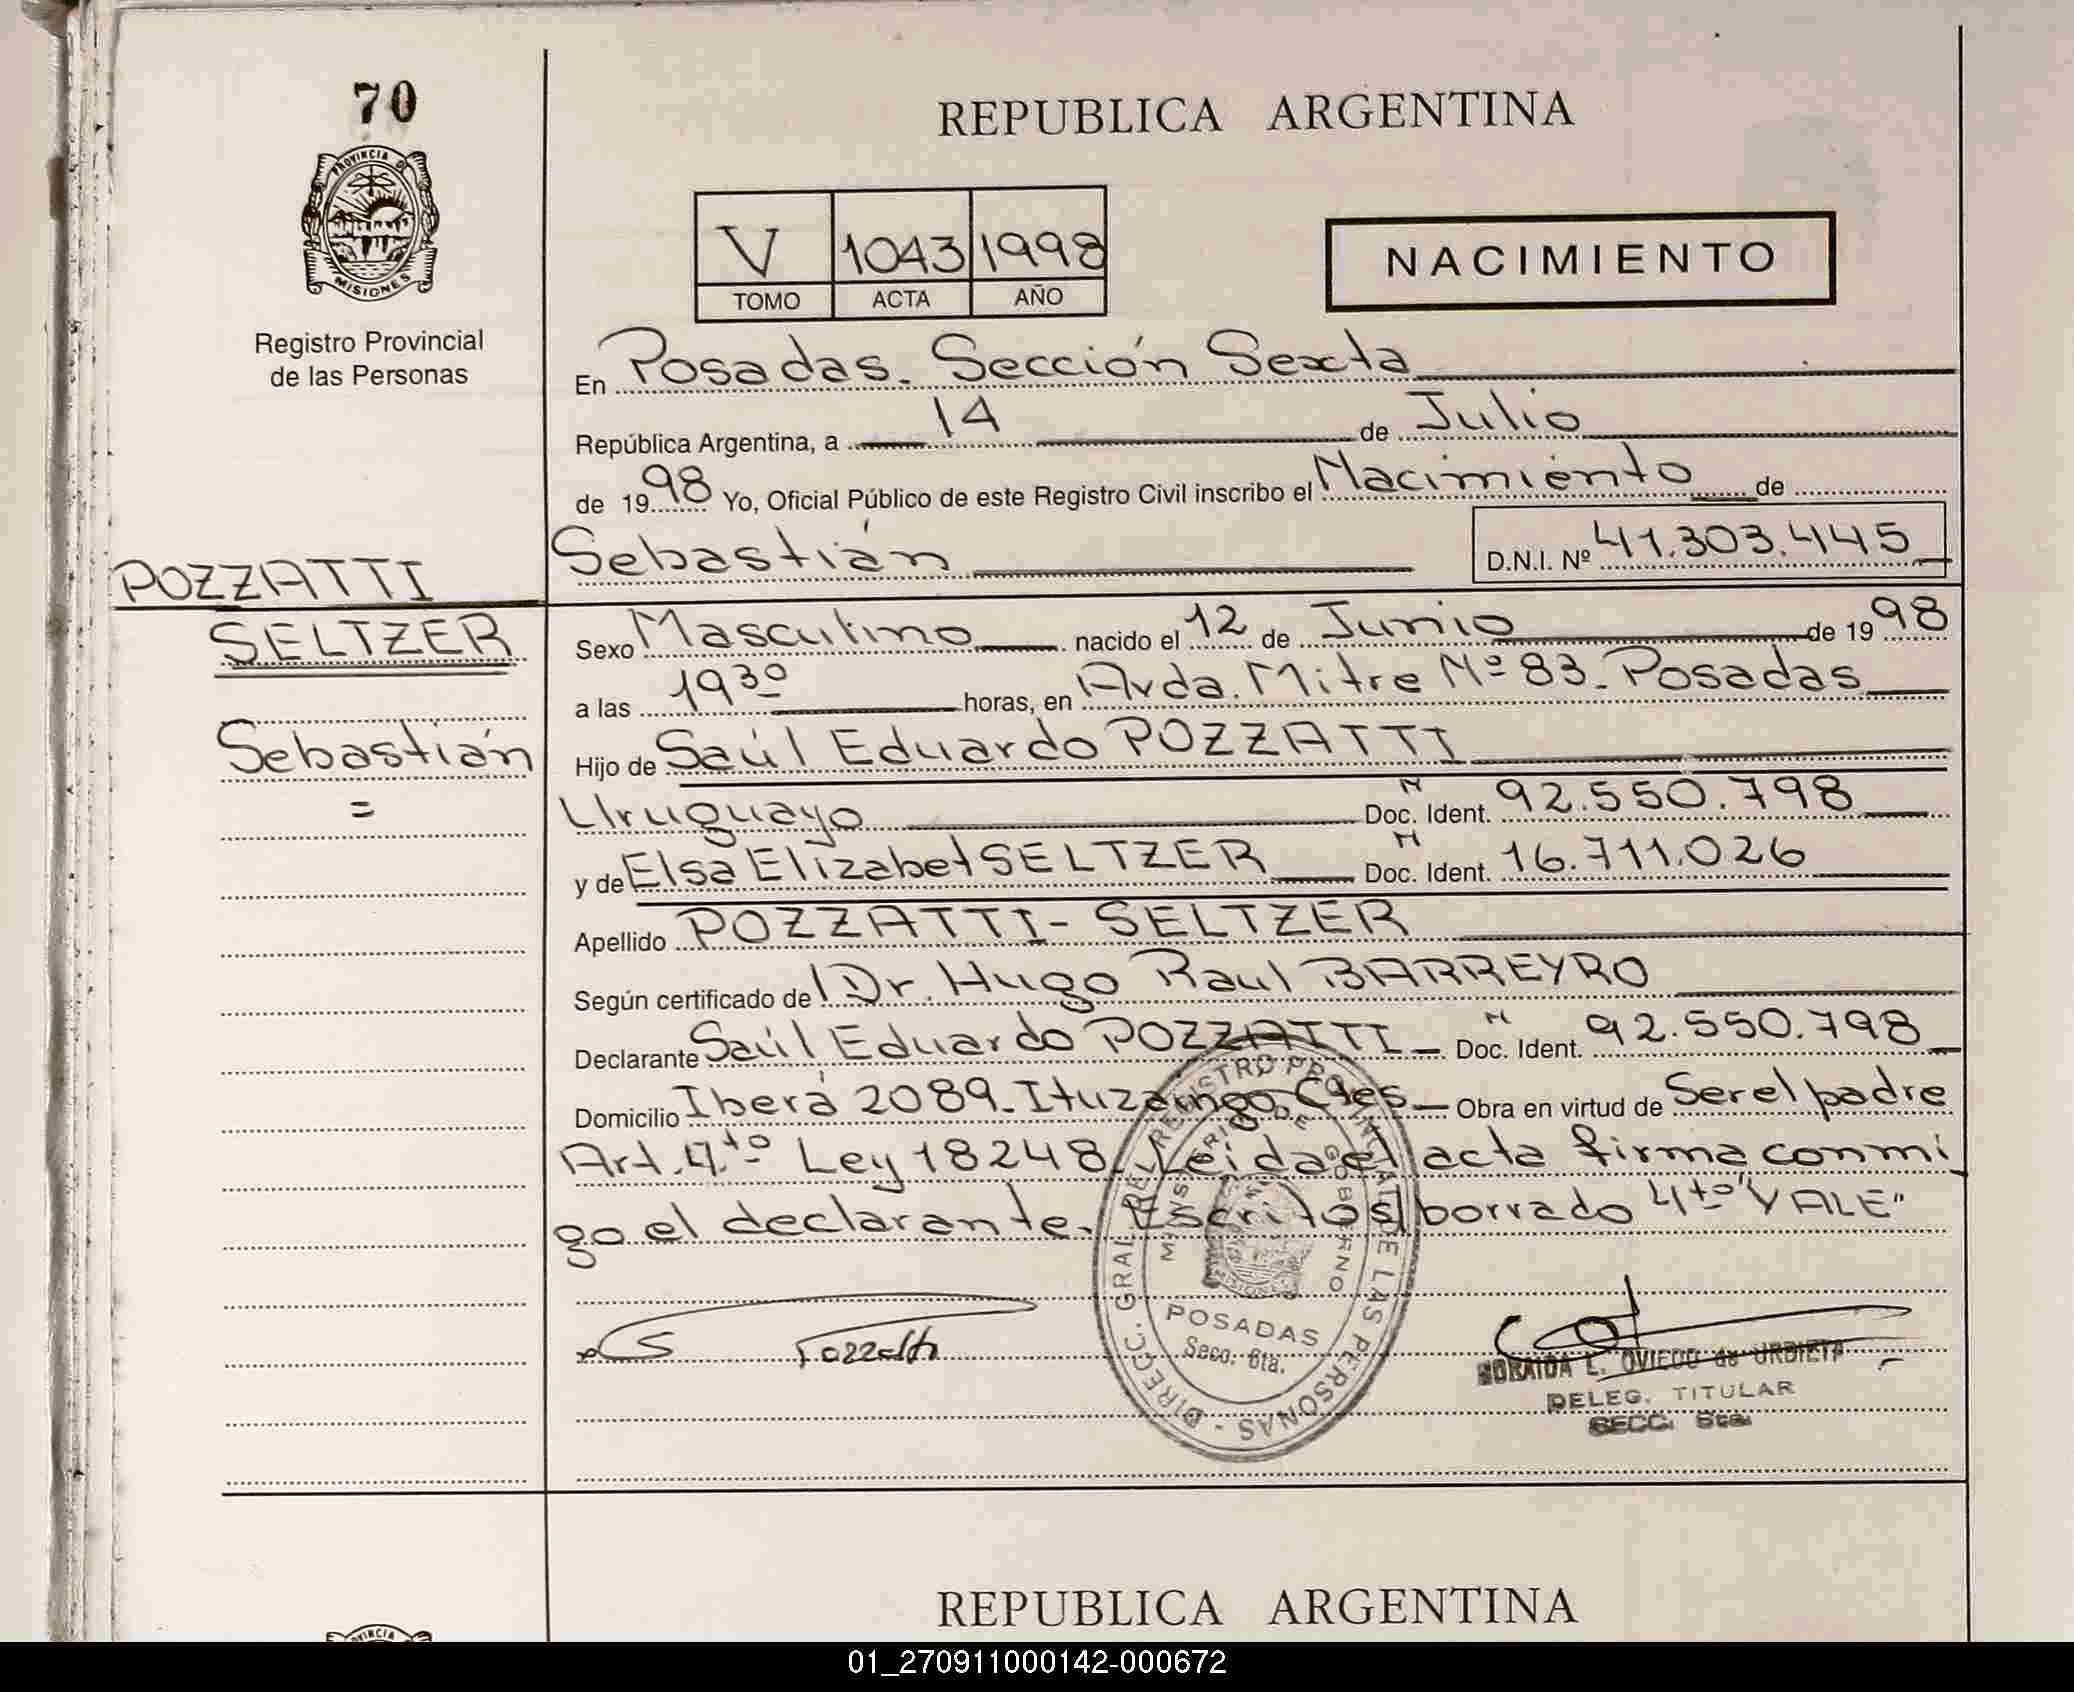 70
PROVINCIA DE
MISIONES
Registro Provincial
de las Personas
REPUBLICA ARGENTINA
V 1043 1998
TOMO ACTA AÑO
NACIMIENTO
En Posadas. Sección Sexta
República Argentina, a 14 de Julio
de 1998 Yo, Oficial Público de este Registro Civil inscribo el Nacimiento de
Sebastián D.N.I. Nº 41.303.445
POZZATTI
SELTZER
Sebastián
=
Sexo Masculino nacido el 12 de Junio de 1998
a las 19³⁰ horas, en Avda. Mitre Nº 83. Posadas
Hijo de Saúl Eduardo POZZATTI
Uruguayo Doc. N Ident. 92.550.798
y de Elsa Elizabet SELTZER Doc. N Ident. 16.711.026
Apellido POZZATTI - SELTZER
Según certificado de Dr. Hugo Raul BARREYRO
Declarante Saúl Eduardo POZZATTI Doc. N Ident. 92.550.798
Domicilio Iberá 2089. Ituzaingo Ctes Obra en virtud de Ser el padre
Art. 4.to Ley 18248. Leida el acta firma conmi
go el declarante. Escrito s/borrado 4to "VALE"
Pozzatti
DIRECC. GRAL. DEL REGISTRO PROVINCIAL DE LAS PERSONAS
MINISTERIO DE GOBIERNO
MISIONES
POSADAS
Secc. 6ta.
L. OVIEDO de URDIETA
DELEG. TITULAR
SECC. 6ta.
REPUBLICA ARGENTINA
01_270911000142-000672